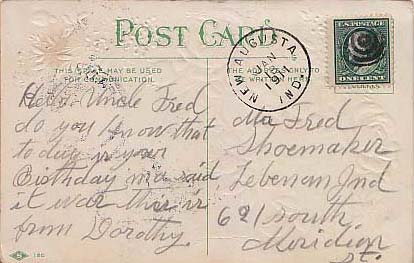 POST CARD
THIS SPACE MAY BE USED
FOR COMMUNICATION.
THE ADDRESS ONLY
TO BE WRITTEN HERE
NEW AUGUSTA
JAN
1911
IND.
U.S. POSTAGE
ONE CENT
Hello Uncle Fred
do you know that
to day is your
Birthday ma said
it was this is
from Dorothy.
Mr Fred
Shoemaker
Lebenan Ind
621 South
Meridian
St.